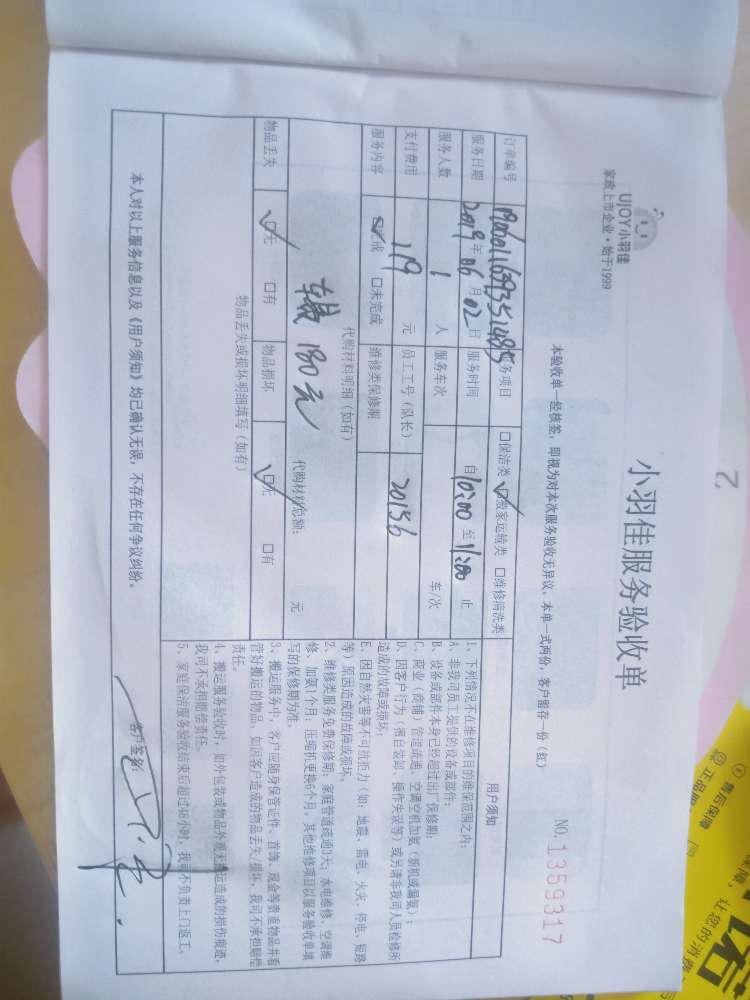 UJOY小羽佳
家政上市企业·始于1999
小羽佳服务验收单
NO.1359317
本验收单一经核签，即视为对本次服务验收无异议。本单一式两份，客户留存一份（红）
订单编号 服务项目 □保洁类 ☑搬家运输类 □维修清洗类
服务日期 2019年06月02日 服务时间 自10:00至11:00止
服务人数 1人 服务车次 车/次
支付费用 119元 员工工号（队长） 20156
服务内容 ☑完成 □未完成 维修类保修期
代购材料明细（如有）
180元 代购材料总额： 元
物品丢失 ☑无 □有 物品损坏 ☑无 □有
物品丢失或损坏明细填写（如有）
用户须知
1、下列情况不在维修项目的维保范围之内：
A、非我司员工提供的设备或部件；
B、设备或部件本身已经超过出厂保修期；
C、商业（商铺）管道疏通、空调空机加氨（新机或漏氨）；
D、因客户行为（擅自装卸、操作失误等）或另请非我司人员检修所
造成的故障或损坏；
E、因自然灾害等不可抗拒力（如：地震、雷电、火灾、停电、短路
等）原因造成的故障或损坏。
2、维修类服务免费保修期：家庭管道疏通3天；水电维修、空调维
修、加氨1个月；压缩机更换6个月，其他维修项目以服务验收单填
写的保修期为准。
3、搬运服务中，客户应随身保管证件、首饰、现金等贵重物品并看
管好搬运的物品，如因客户造成的物品丢失/损坏，我司不承担赔偿
责任。
4、搬运服务验收时，如外包装或物品外观无搬运造成的损伤痕迹，
我司不承担赔偿责任。
5、家庭保洁服务验收结束后超过48小时，我司不负责上门返工。
本人对以上服务信息以及《用户须知》均已确认无误，不存在任何争议纠纷。
客户签名：
2
售后保障
正品
让您的消费